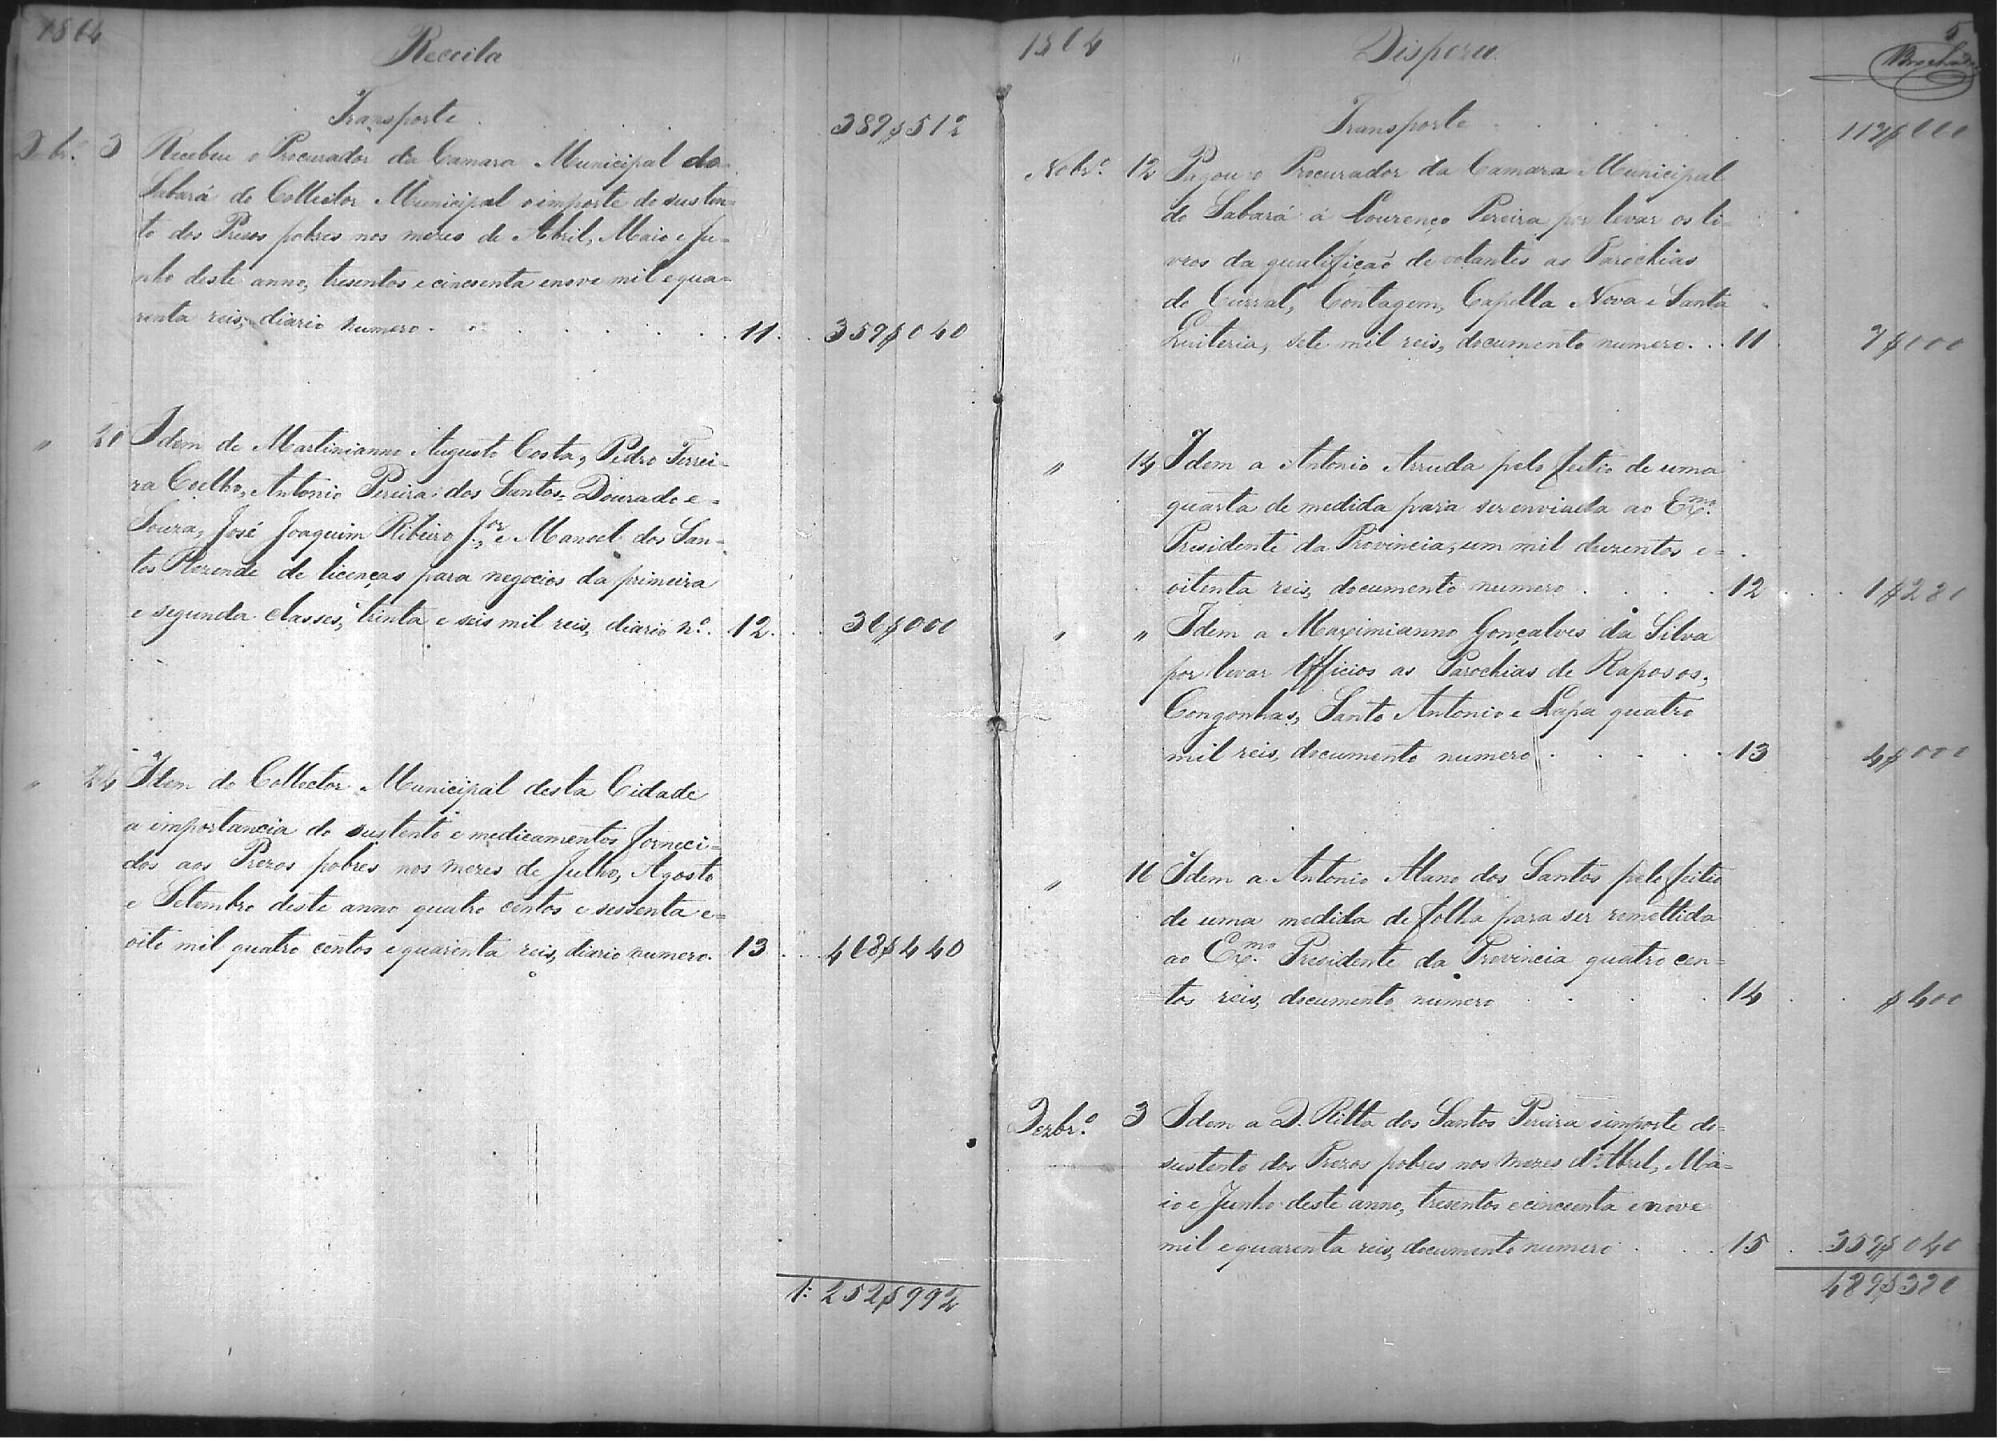 1864
Receita
Transporte 389$512
Dzbr.º 3 Recebeu o Procurador da Camara Municipal do
Sabará do Collector Municipal o importe do susten-
to dos Presos pobres nos mezes de Abril, Maio e Ju-
nho deste anno, tresentos e cincoenta e nove mil e qua-
renta reis, diario numero 11 359$040
" 20 Idem de Martinianno Augusto Costa, Pedro Ferrei-
ra Coelho, Antonio Pereira dos Santos, Dourado e-
Souza, José Joaquim Ribeiro Jor. e Manoel dos San-
tos Rezende de licenças para negocios da primeira
e segunda classes, trinta e seis mil reis, diario nº. 12 36$000
" 24 Idem do Collector Municipal desta Cidade
a importancia do sustento e medicamentos forneci-
dos aos Prezos pobres nos mezes de Julho, Agosto
e Setembro deste anno quatro centos e sessenta e-
oito mil quatro centos e quarenta reis, diario numero. 13 468$440
1:252$992
5
1864
Dispeza
Transporte 117$600
Nobr.º 12 Pagou o Procurador da Camara Municipal
do Sabará á Lourenço Pereira por levar os li-
vros da qualificaçaõ de votantes as Parochias
do Curral, Contagem, Capella Nova e Santa
Quiteria, sete mil reis, documento numero 11 7$000
" 14 Idem a Antonio Arruda pelo feitio de uma
quarta de medida para ser enviada ao Exmo.
Presidente da Provincia, um mil duzentos e-
oitenta reis, documento numero 12 1$280
" " Idem a Maximianno Gonçalves da Silva
por levar Officios as Parochias de Raposos,
Congonhas, Santo Antonio e Lapa quatro
mil reis, documento numero 13 4$000
" 16 Idem a Antonio Alano dos Santos pelo feitio
de uma medida de folha para ser remettida
ao Exmo. Presidente da Provincia quatro cen-
tos reis, documento numero 14 $400
Dezbr.º 3 Idem a D. Ritta dos Santos Pereira o importe do-
sustento dos Prezos pobres nos mezes d'Abril, Ma-
io e Junho deste anno, tresentos e cincoenta e nove
mil e quarenta reis, documento numero 15 359$040
489$320